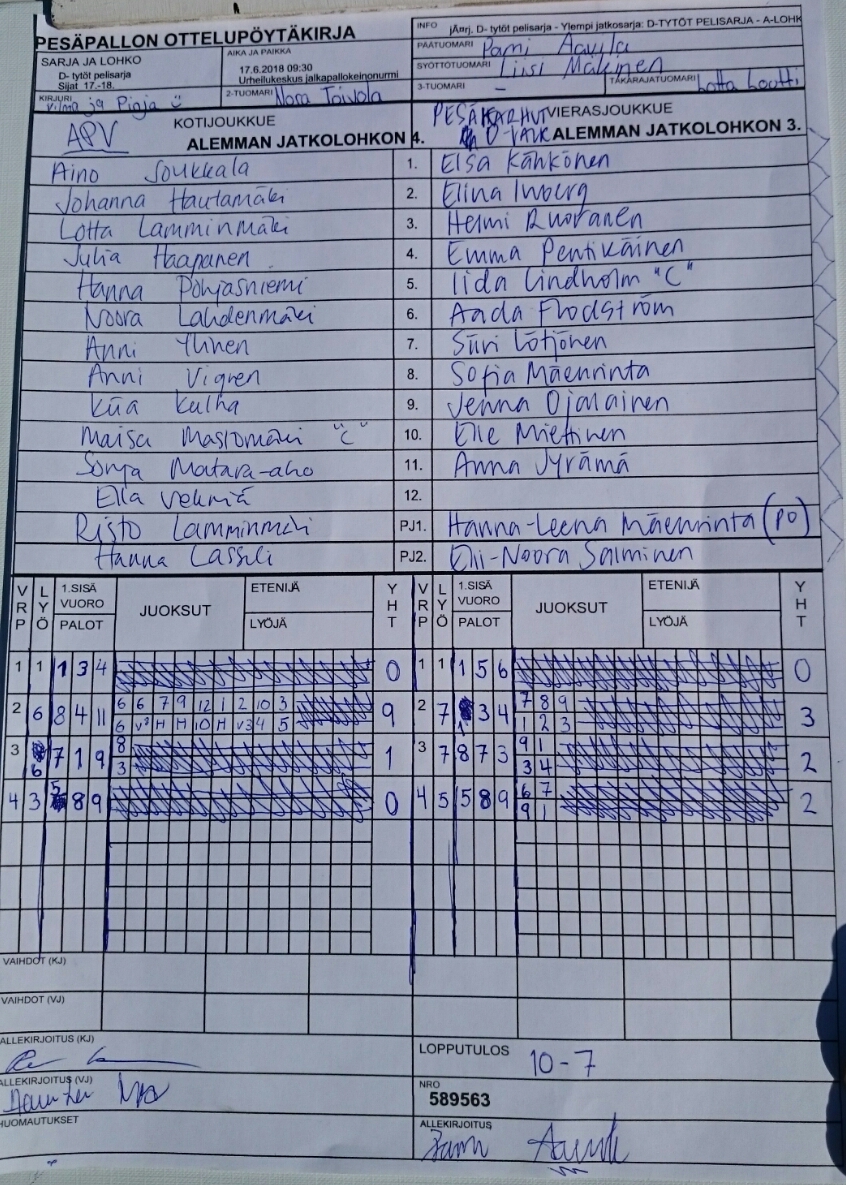 PESÄPALLON OTTELUPÖYTÄKIRJA
INFO jÄnrj. D- tytöt pelisarja - Ylempi jatkosarja: D-TYTÖT PELISARJA - A-LOHK
SARJA JA LOHKO
D- tytöt pelisarja
Sijat 17.-18.
AIKA JA PAIKKA
17.6.2018 09:30
Urheilukeskus jalkapallokeinonurmi
PÄÄTUOMARI
SYÖTTÖTUOMARI Liisi Mäkinen
3-TUOMARI -
TAKARAJATUOMARI Lotta
KIRJURI Vilma ja Pinja
2-TUOMARI Nora Toivola
APV
KOTIJOUKKUE
ALEMMAN JATKOLOHKON 4.
PESÄKARHUT
VIERASJOUKKUE
ALEMMAN JATKOLOHKON 3.
Aino Joukkala 1. Elsa Kähkönen
Johanna Hautamäki 2. Elina Inberg
Lotta Lamminmäki 3. Helmi Ruohanen
Julia Haapanen 4. Emma Pentikäinen
Hanna Pohjasniemi 5. Iida Lindholm "C"
Noora Lahdenmäki 6. Aada Flodström
Anni Ylinen 7. Siiri Lötjönen
Anni Vigren 8. Sofia Mäenrinta
Kiia Kulha 9. Jenna Ojalainen
Maisa Mastomäki "C" 10. Elle Miettinen
Sonja Matara-aho 11. Anna Jyrämä
Ella 12.
Risto Lamminmäki PJ1. Hanna-Leena Mäenrinta (PO)
Hanna Lassili PJ2. Elli-Noora Salminen
VRP LYÖ 1.SISÄ VUORO PALOT JUOKSUT ETENIJÄ LYÖJÄ YHT VRP LYÖ 1.SISÄ VUORO PALOT JUOKSUT ETENIJÄ LYÖJÄ YHT
1 1 1 3 4 0 1 1 1 5 6 0
6 6 7 9 12 1 2 10 3 7 8 9
2 6 8 4 11 9 2 7 1 3 4 3
6 V3 H H 10 H V3 4 5 1 2 3
8 9 1
3 6 7 1 9 1 3 7 8 7 3 2
3 3 4
6 7
4 3 5 8 9 0 4 5 5 8 9 2
9 1
VAIHDOT (KJ)
VAIHDOT (VJ)
ALLEKIRJOITUS (KJ)
LOPPUTULOS 10-7
ALLEKIRJOITUS (VJ)
NRO
589563
HUOMAUTUKSET
ALLEKIRJOITUS